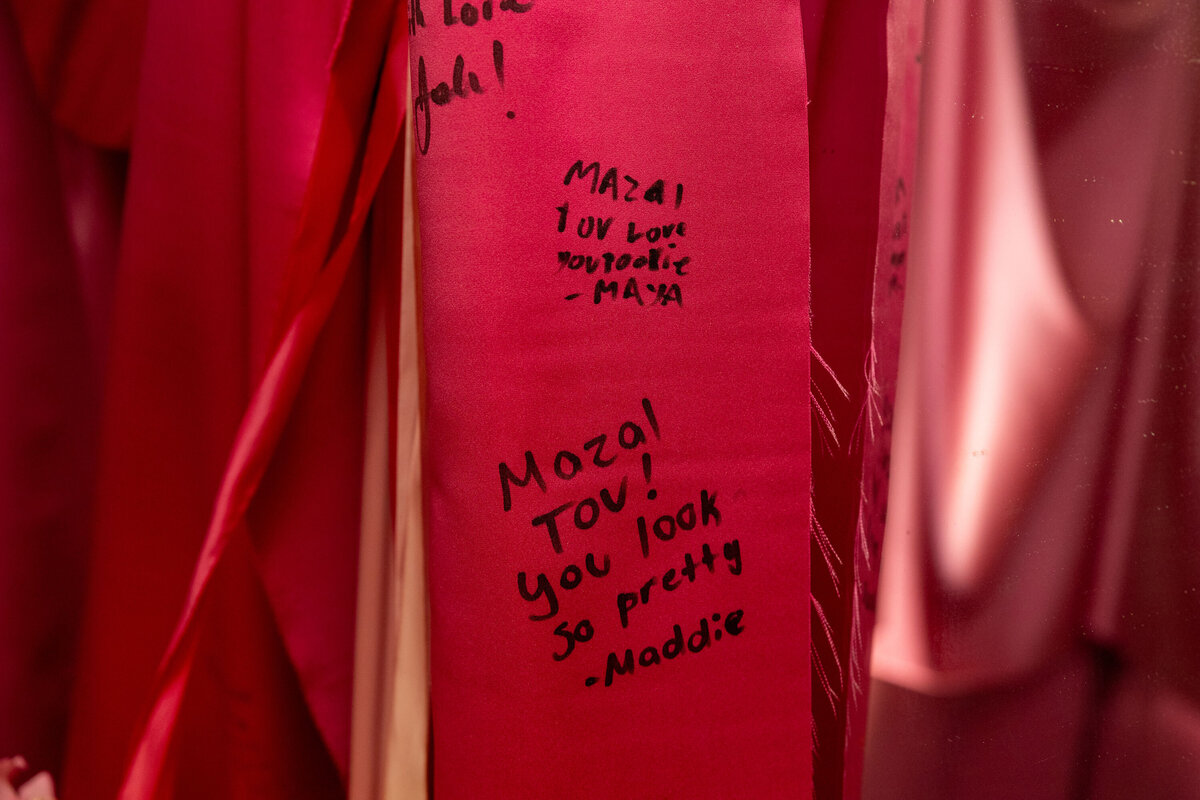 Love
MAZAl
TOV LOVE
YOU POOKIE
- MAYA
Mazal
TOV!
you look
so pretty
-Maddie